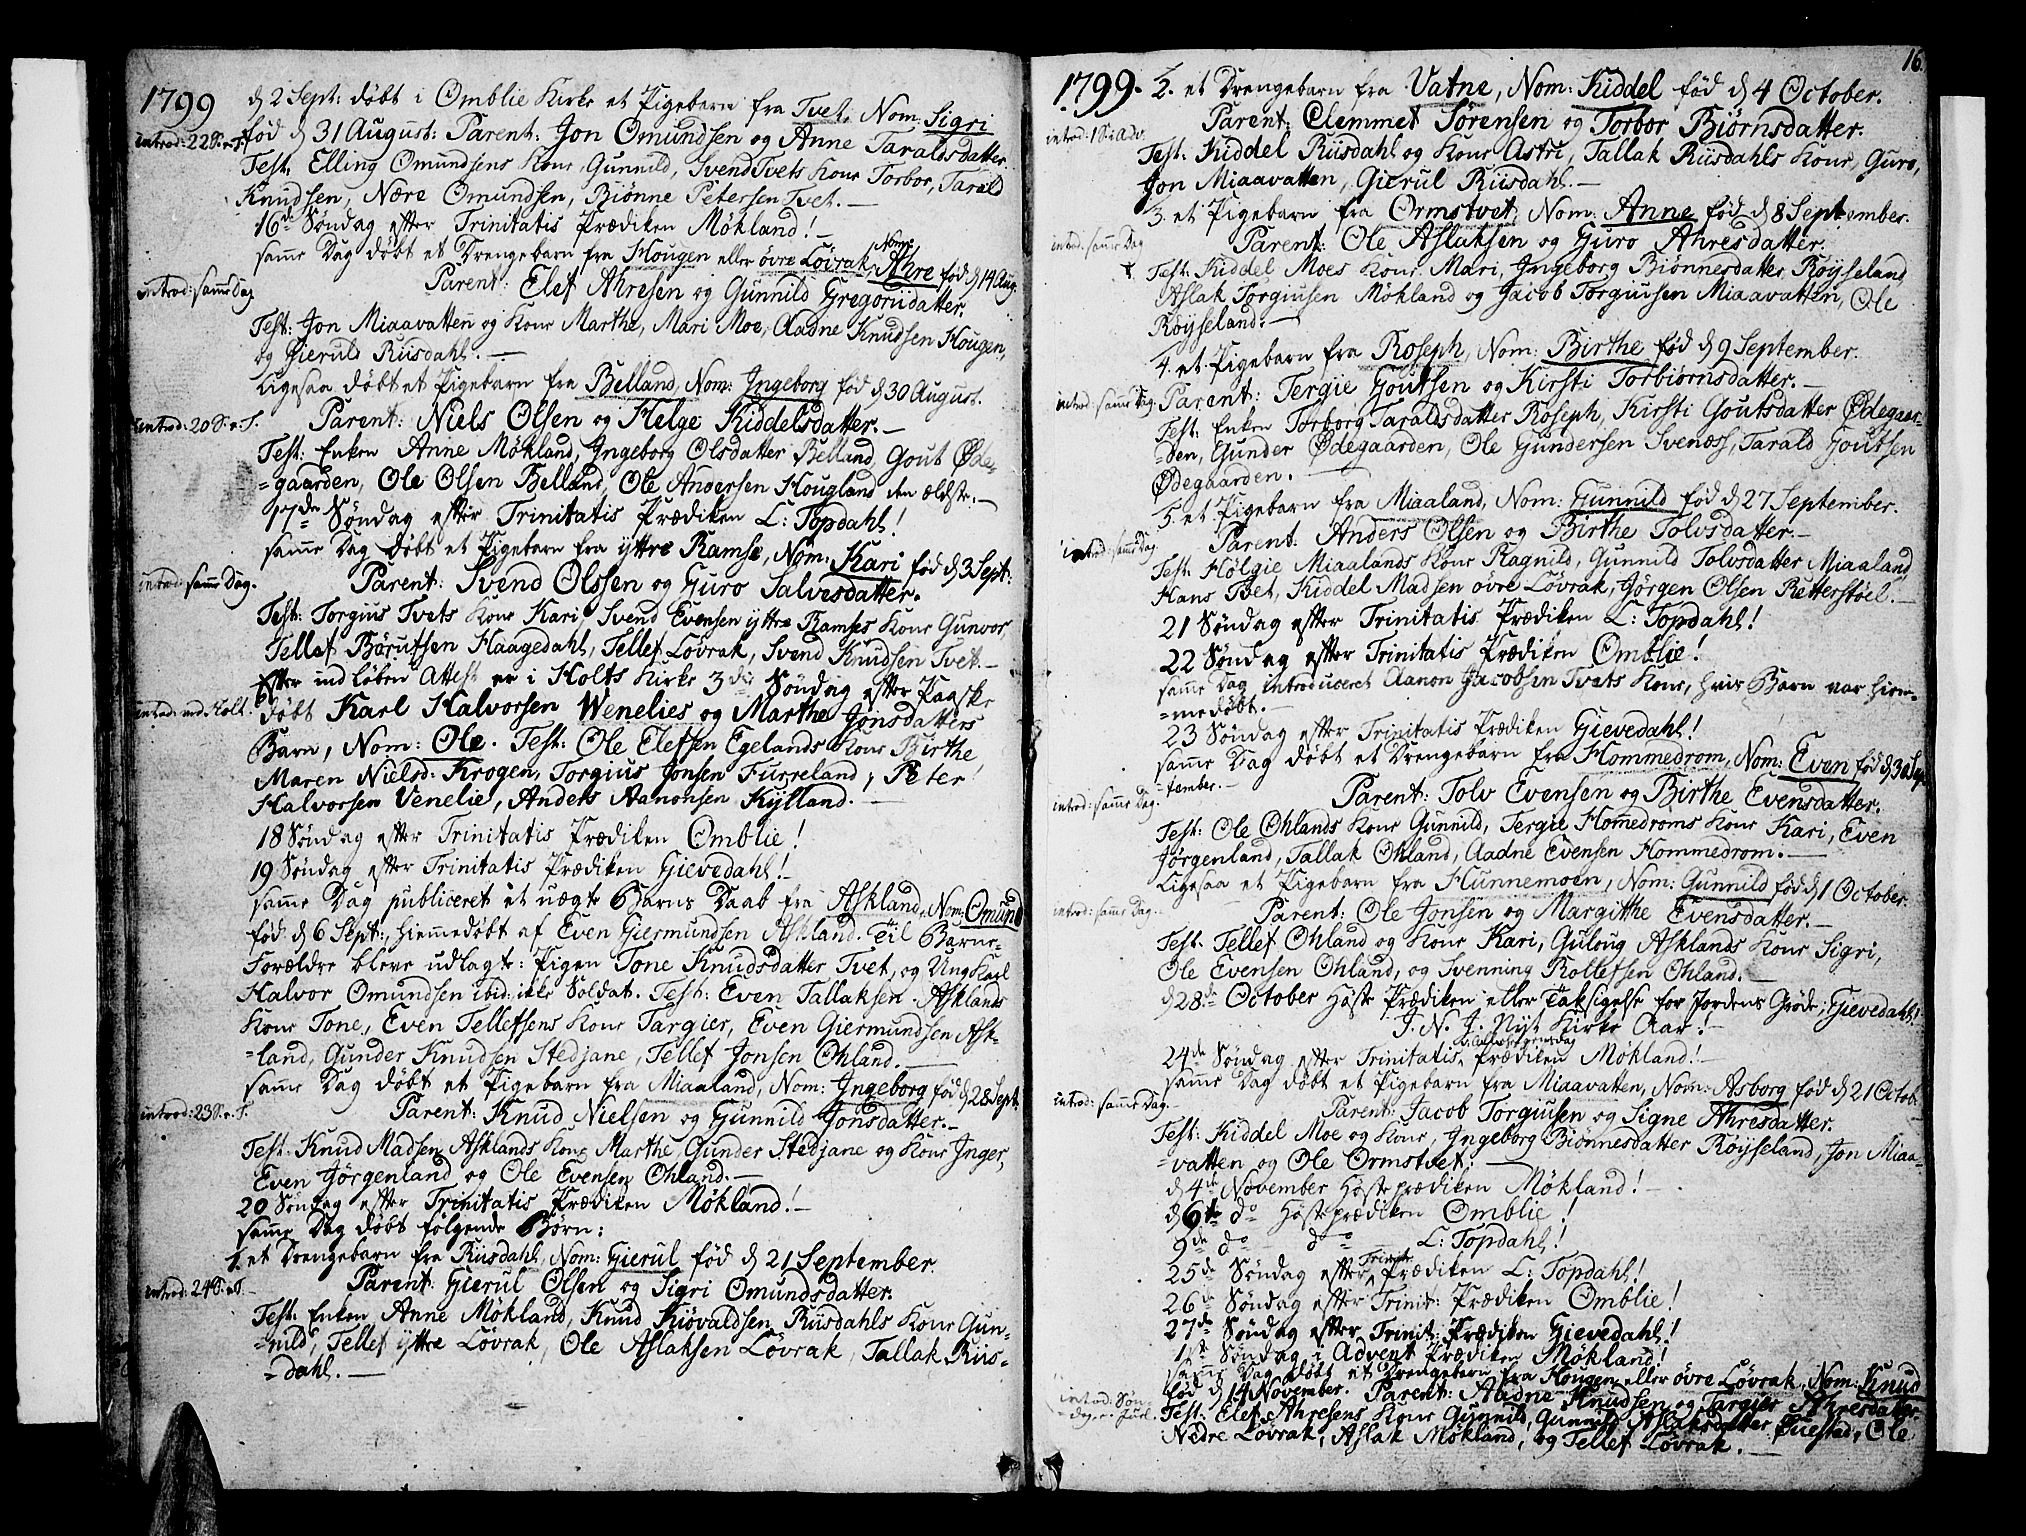 1799
d 2 Sept: døbt i Omblie Kirke et Pigebarn fra Tvet, Nom: Sigri
introd: 22 S. e. T.
fød d 31 August: Parent: Jon Omundsen og Anne Taraldsdatter.
Test: Elling Omundsens Kone Gunnild, Svend Tvets Kone Torbor, Tarald
Knudsen, Nære Omundsen, Biønne Petersen Tvet.
16de Søndag efter Trinitatis Prædiken Møkland!
samme Dag døbt et Drengebarn fra Hougen eller øvre Løvrak, Nom: Ahre fød d 14 Aug:
introd: samme Dag
Parent: Elef Ahresen og Gunnild Gregoriidatter.
Test: Jon Miaavatten og Kone Marthe, Mari Moe, Aadne Knudsen Hougen,
og Gieruld Riisdahl.
Ligesaa døbt et Pigebarn fra Belland, Nom: Ingeborg fød d 30 August.
introd: 20 S. e. T.
Parent: Niels Olsen og Helge Kiddelsdatter.
Test: Enken Anne Møkland, Ingeborg Olsdatter Belland, Gout Øde-
=gaarden, Ole Olsen Belland, Ole Andersen Hougland den ældste.
17de Søndag efter Trinitatis Prædiken L: Topdahl!
samme Dag døbt et Pigebarn fra yttre Ramse, Nom: Kari fød d 3 Sept:
introd: samme Dag.
Parent: Svend Olssen og Guro Salvesdatter.
Test: Torgius Tvets Kone Kari, Svend Evensen yttre Ramses Kone Gunvor,
Tellef Børutsen Haagedahl, Tellef Løvrak, Svend Knudsen Tvet.
Efter indløben Attest er i Holts Kirke 3die Søndag efter Paaske
introd: ved Holt.
døbt Karl Halvorsen Wenelies og Marthe Jonsdatters
Barn, Nom: Ole. Test: Ole Elefsen Egelands Kone Birthe
Maren Nielsd: Krogen, Torgius Jonsen Furreland, Peter
Halvorsen Venelie, Anders Aanonsen Kylland.
18 Søndag efter Trinitatis Prædiken Omblie!
19 Søndag efter Trinitatis Prædiken Gievedahl!
samme Dag publiceret et uægte Barns Daab fra Askland, Nom: Omund
fød d 6 Sept:, hiemmedøbt af Even Giermundsen Askland. Til Barne-
Forældre bleve udlagte: Pigen Tone Knudsdatter Tvet, og Ung Karl
Halvor Omundsen ibid: ikke Soldat. Test: Even Tallaksen Asklands
Kone Tone, Even Tellefsens Kone Targier, Even Giermundsen Ask-
=land, Gunder Knudsen Stedjane, Tellef Jonsen Ohland.
samme Dag døbt et Pigebarn fra Miaaland, Nom: Ingeborg fød d 28 Sept.
introd: 23 S. e. T.
Parent: Knud Nielsen og Gunnild Jonsdatter.
Test: Knud Madsen Asklands Kone Marthe, Gunder Stedjane og Kone Inger,
Even Jørgenland og Ole Evensen Ohland.
20 Søndag efter Trinitatis Prædiken Møkland!
samme Dag døbt følgende Børn:
1. et Drengebarn fra Riisdahl, Nom: Gierul fød d 21 September.
introd: 24 S. e. T.
Parent: Gierul Olsen og Sigri Omundsdatter.
Test: Enken Anne Møkland, Knud Kiøvaldsen Riisdahls Kone Gun-
=nild, Tellef yttre Løvrak, Ole Aslaksen Løvrak, Tallak Riis-
=dahl.
16.
1799. 2. et Drengebarn fra Vatne, Nom: Kiddel fød d 4 October.
introd: 1 S: i Adv.
Parent: Clemmet Sørensen og Torbor Biørnsdatter.
Test: Kiddel Riisdahl og Kone Astri, Tallak Riisdahls Kone, Guro,
Jon Miaavatten, Gierul Riisdahl.
3. et Pigebarn fra Ormstvet, Nom: Anne fød d 8 September.
introd: samme Dag
Parent: Ole Aslaksen og Guro Ahresdatter.
Test: Kiddel Moes Kone Mari, Ingeborg Biønnesdatter Røyseland,
Aslak Torgiusen Møkland og Jacob Torgiusen Miaavatten, Ole
Røyseland.
4. et Pigebarn fra Roseph, Nom: Birthe fød d 9 September.
introd: samme Dag.
Parent: Tergie Goutsen og Kirsti Torbiørnsdatter.
Test: Enken Torborg Taraldsdatter Roseph, Kirsti Goutsdatter Ødegaar-
=den, Gunder Ødegaarden, Ole Gundersen Svenæss, Tarald Goutsen
Ødegaarden.
5. et Pigebarn fra Miaaland, Nom: Gunnild fød d 27 September.
introd: samme Dag.
Parent: Anders Olsen og Birthe Tolvsdatter.
Test: Hølgie Miaalands Kone Ragnild, Gunnild Tolvsdatter Miaaland,
Hans Tvet, Kiddel Madsen øvre Løvrak, Jørgen Olsen Retterstøel.
21 Søndag efter Trinitatis Prædiken L: Topdahl!
22 Søndag efter Trinitatis Prædiken Omblie!
samme Dag introduceret Aanon Jacobsen Tvets Kone, hvis Barn var hiem-
=medøbt.
23 Søndag efter Trinitatis Prædiken Gievedahl!
samme Dag døbt et Drengebarn fra Hommedrom, Nom: Even fød d 30 Sep-
=tember.
introd: samme Dag.
Parent: Tolv Evensen og Birthe Evensdatter.
Test: Ole Ohlands Kone Gunnild, Tergie Hommedroms Kone Kari, Even
Jørgenland, Tallak Ohland, Aadne Evensen Hommedrom.
Ligesaa et Pigebarn fra Hunnemoen, Nom: Gunnild fød d 1 October.
introd: samme Dag.
Parent: Ole Jonsen og Margitthe Evensdatter.
Test: Tellef Ohland og Kone Kari, Guloug Asklands Kone Sigri,
Ole Evensen Ohland, og Svenning Rollefsen Ohland.
d 28de October Høste Prædiken eller Taksigelse for Jordens Grøde, Gievedahl!
I. N. J. Nyt Kirke Aar!
24de Søndag efter Trinitatis, Allehelgensdag Prædiken Møkland!
samme Dag døbt et Pigebarn fra Miaavatten, Nom: Asborg fød d 21 Octob:
introd: samme Dag.
Parent: Jacob Torgiusen og Signe Ahresdatter.
Test: Kiddel Moe og Kone, Ingeborg Biønnesdatter Røyseland, Jon Miaa-
=vatten og Ole Ormstvet.
d 4de November Høste prædiken Møkland!
d 6te do Høsteprædiken Omblie!
9de do do L: Topdahl!
25de Søndag efter Trinit: Prædiken L: Topdahl!
26de Søndag efter Trinit: Prædiken Omblie!
27de Søndag efter Trinit: Prædiken Gievedahl!
1ste Søndag i Advent Prædiken Møkland!
samme Dag døbt et Drengebarn fra Hougen eller øvre Løvrak, Nom: Knud
fød d 14 November. Parent: Aadne Knudsen og Targier Ahresdatter
introd: Søn-
=dag e. Juel.
Test: Elef Ahresens Kone Gunnild, Gunnild Aslaksdatter Tuested, Ole
Nedre Løvrak, Aslak Møkland, og Tellef Løvrak.